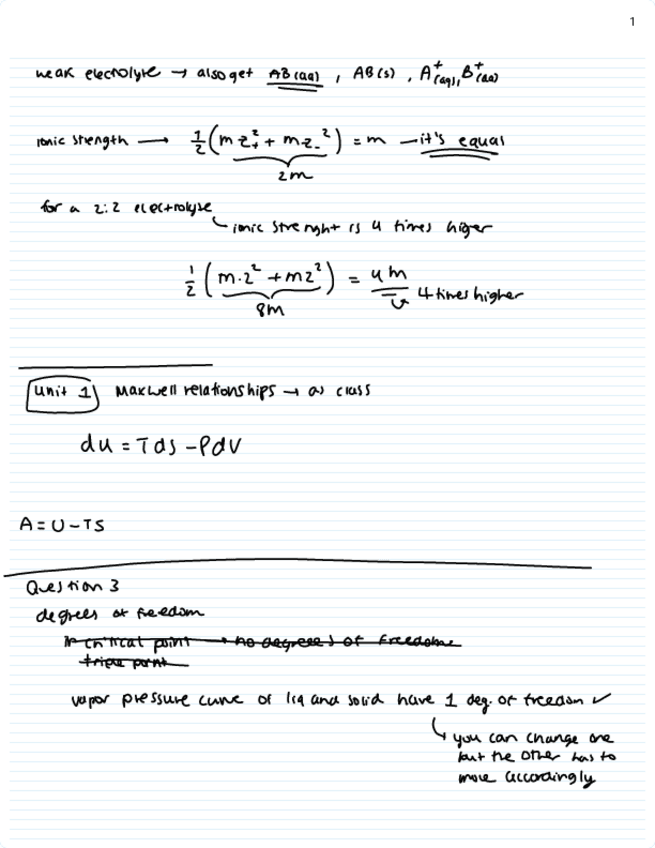 1
weak electrolyte → also get AB(aq) , AB(s) , A⁺(aq), B⁺(aq)
ionic strength → 1/2 (m z₊² + m z₋²) = m — it's equal
2m
for a 2:2 electrolyte
ionic strenght is 4 times higer
1/2 (m·2² + m2²) = 4m
8m
4 times higher
Unit 1 Maxwell relationships → as class
du = TdS - PdV
A = U - TS
Question 3
degrees of freedom
critical point → no degrees of freedome
triple point
vapor pressure curve of liq and solid have 1 deg. of freedom ✓
↳ you can change one
but the other has to
move accordingly